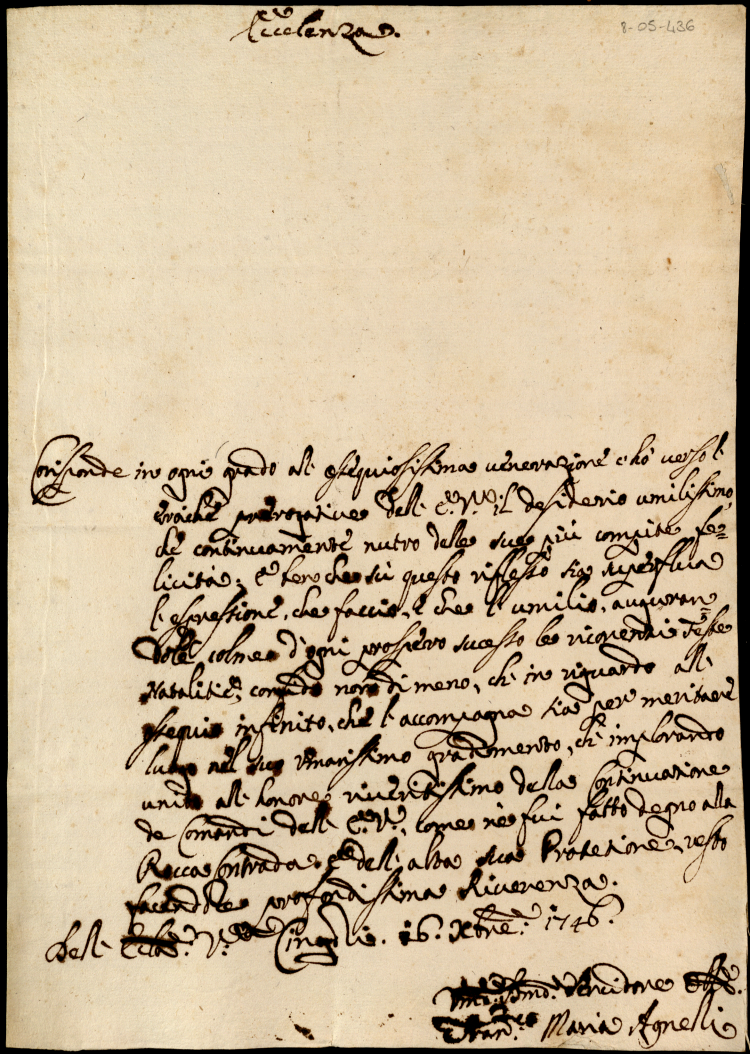 Eccelenza.
8-05-436
Corisponde in ogni grado all' ossequiosissima venerazione c'hò verso l'
eroiche prerogative dell' E.V. il desiderio umilissimo,
che continuamente nutro delle sue più compite fe=
licità; E benche sù questo riflesso sia superflua
l'espressione, che faccio, e che l'umilio, auguran=
dole colme d'ogni prospero sucesso le ricorrenti Feste
Natalitie, confido non di meno, che in riguardo all'
ossequio infinito, che l'accompagna sia per meritare
luogo nel suo umanissimo gradimento, che implorando
unito all' honore riveritissimo della Continuatione
de Comandi dell' E.V., come nè fui fatto degno alla
Rocca Contrada, e dell' alta sua Protetione, resto
facendole profondissima Riverenza.
Dell' V. Cingoli. 16. Xbre. 1746.
Servidore
Fran. Maria Agnelli